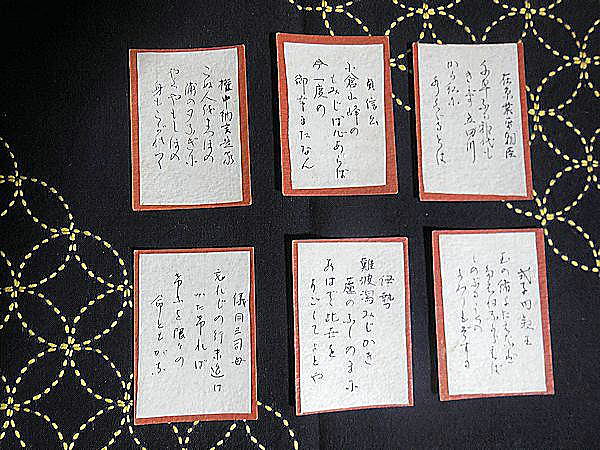 在原業平朝臣
千早ふる神代も
きかず立田川
から紅に
水くくるとは
貞信公
小倉山峰の
もみじ葉心あらば
今一度の
御幸またなん
権中納言定家
こぬ人をまつほの
浦の夕なぎに
やくやもしほの
身もこがれつつ
式子内親王
玉の緒よたえなば
たえねながらへば
しのぶることの
よわりもぞする
伊勢
難波潟みじかき
蘆のふしのまも
あはで此世を
すごしてよとや
儀同三司母
忘れじの行末迄は
かたければ
今日を限りの
命ともがな